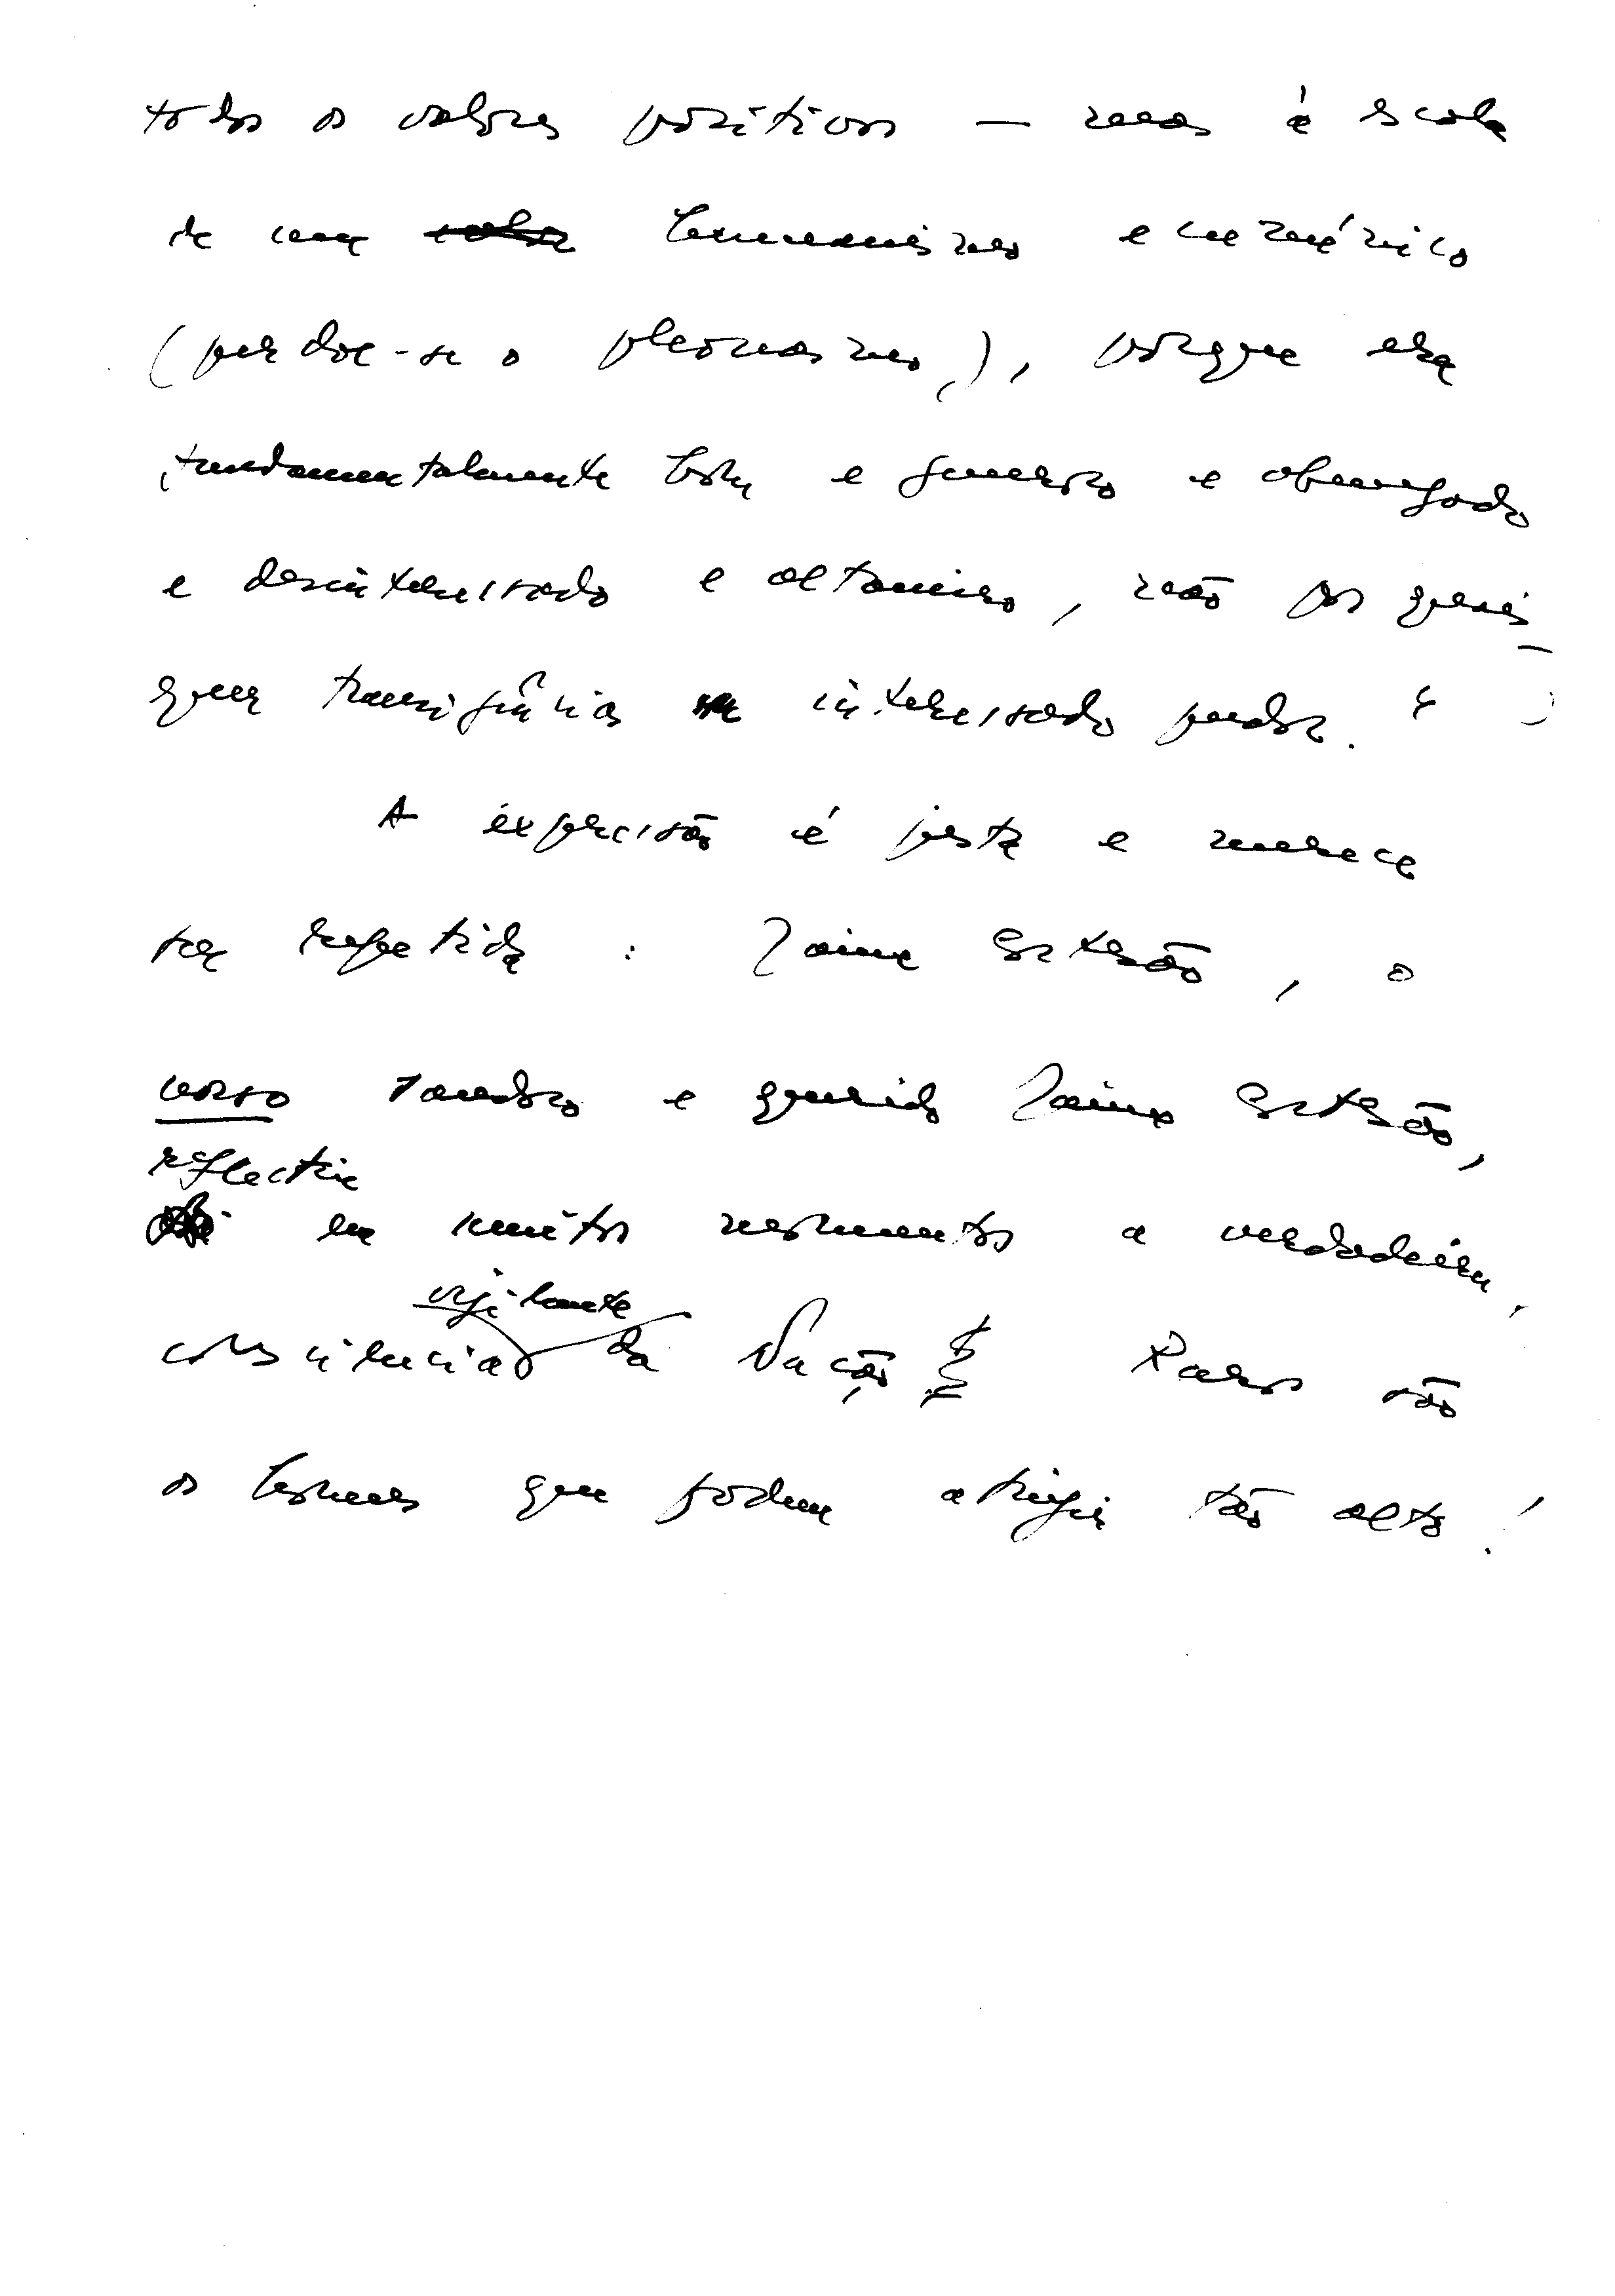 todos os valores positivos — mas à escala
de um humanismo ecuménico
(perdoe-se o pleonasmo), porque era
fundamentalmente bom e generoso e abnegado
e desinteressado e altaneiro, não por qual-
quer transigência interessado pendor."
A expressão é justa e merece
ser repetida: Jaime Cortesão, o
nosso saudoso e querido Jaime Cortesão,
reflectiu
em muitos momentos a verdadeira,
vigilante
consciência da Nação Raros são
os homens que podem atingir tão alto!